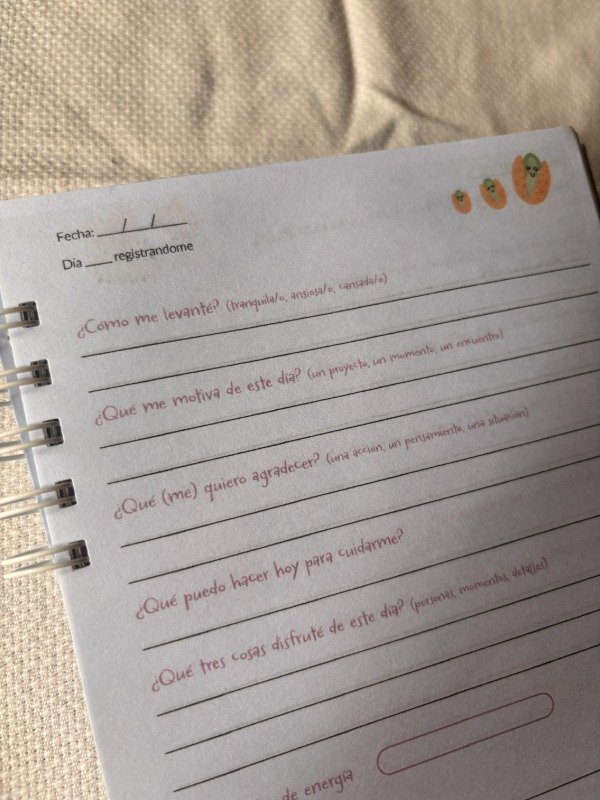 Fecha: ___/___/___
Dia ____ registrandome
¿Cómo me levanté? (tranquila/o, ansiosa/o, cansada/o)
¿Qué me motiva de este día? (un proyecto, un momento, un encuentro)
¿Qué (me) quiero agradecer? (una acción, un pensamiento, una situación)
¿Qué puedo hacer hoy para cuidarme?
¿Qué tres cosas disfruté de este día? (personas, momentos, detalles)
de energía